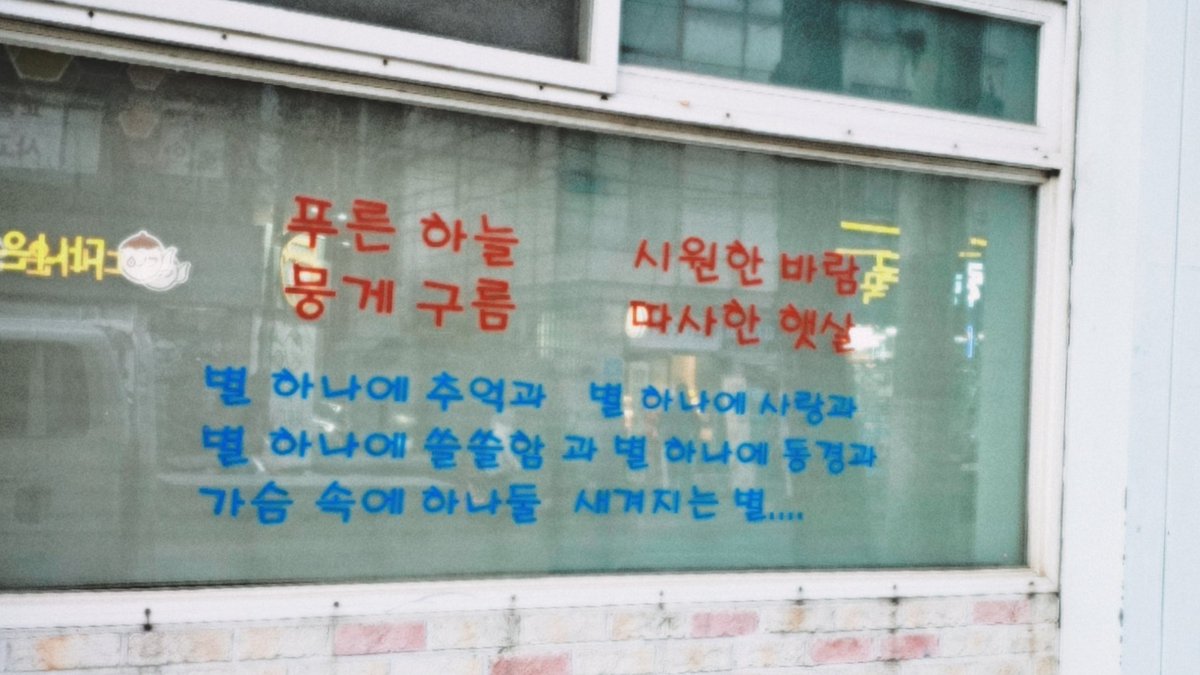 푸른 하늘
뭉게 구름
시원한 바람
따사한 햇살
별 하나에 추억과 별 하나에 사랑과
별 하나에 쓸쓸함 과 별 하나에 동경과
가슴 속에 하나둘 새겨지는 별....